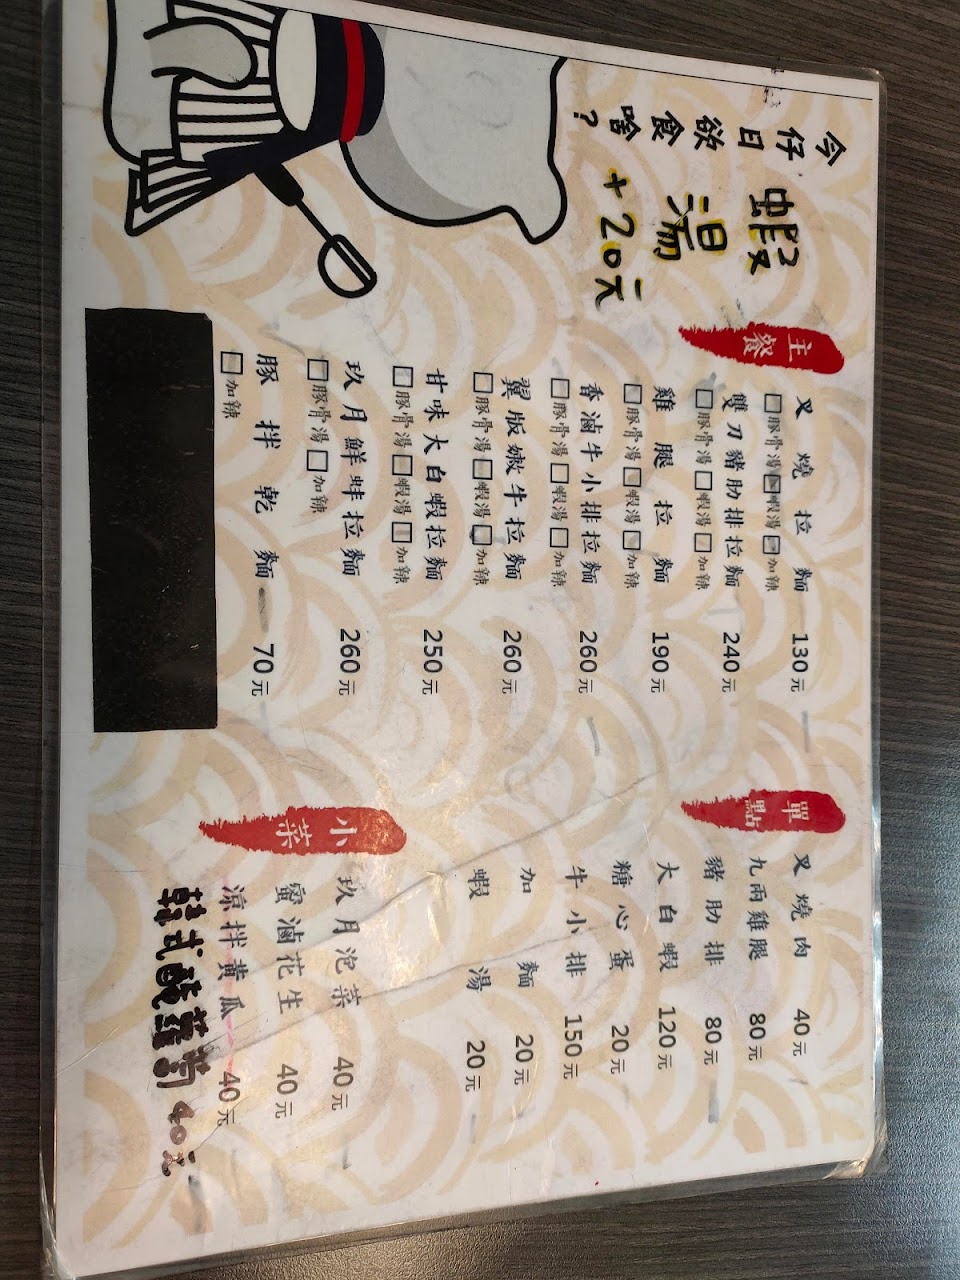 今仔日欲食啥?
蝦湯+20元
主餐
叉燒拉麵 130元
□豚骨湯□蝦湯□加辣
雙刀豬肋排拉麵 240元
□豚骨湯□蝦湯□加辣
雞腿拉麵 190元
□豚骨湯□蝦湯□加辣
香滷牛小排拉麵 260元
□豚骨湯□蝦湯□加辣
翼版嫩牛拉麵 260元
□豚骨湯□蝦湯□加辣
甘味大白蝦拉麵 250元
□豚骨湯□蝦湯□加辣
玖月鮮蚌拉麵 260元
□豚骨湯□加辣
豚拌乾麵 70元
□加辣
單點
叉燒肉 40元
九兩雞腿 80元
豬肋排 80元
大白蝦 120元
糖心蛋 20元
牛小排 150元
加麵 20元
蝦湯 20元
小菜
玖月泡菜 40元
蜜滷花生 40元
涼拌黃瓜 40元
韓式醃蘿蔔 40元